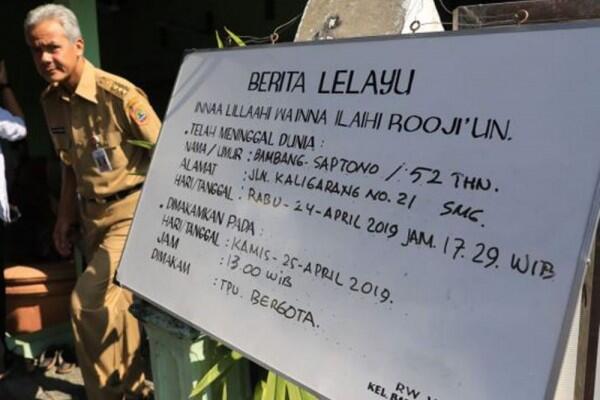 BERITA LELAYU
INNAA LILLAAHI WAINNA ILAIHI ROOJI'UN.
• TELAH MENINGGAL DUNIA :
NAMA / UMUR : BAMBANG - SAPTONO / 52 THN.
ALAMAT : JLN. KALIGARANG NO. 21 SMG.
HARI/TANGGAL : RABU - 24 - APRIL 2019 JAM. 17.29 WIB
• DIMAKAMKAN PADA :
HARI/TANGGAL : KAMIS - 25 - APRIL 2019.
JAM : 13.00 WIB
DIMAKAM : TPU. BERGOTA.
RW
KEL.